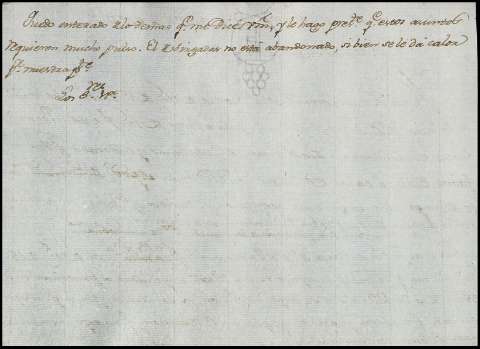 Quedo enterado de lo demas q.e me dice Vm., y le hago pres.te q.e estos asuntos
requieren mucho pulso. El Obrigadas no esta abandonado, si bien se le da calor
p.r nuestra p.te
Los S.res